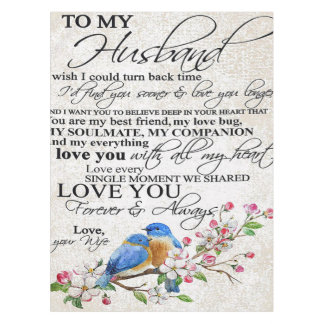 TO MY
Husband
wish I could turn back time
I'd find you sooner & love you longer
AND I WANT YOU TO BELIEVE DEEP IN YOUR HEART THAT
You are my best friend, my love bug,
MY SOULMATE, MY COMPANION
and my everything
love you with all my heart
Love every
SINGLE MOMENT WE SHARED
LOVE YOU
Forever & Always
Love,
your Wife